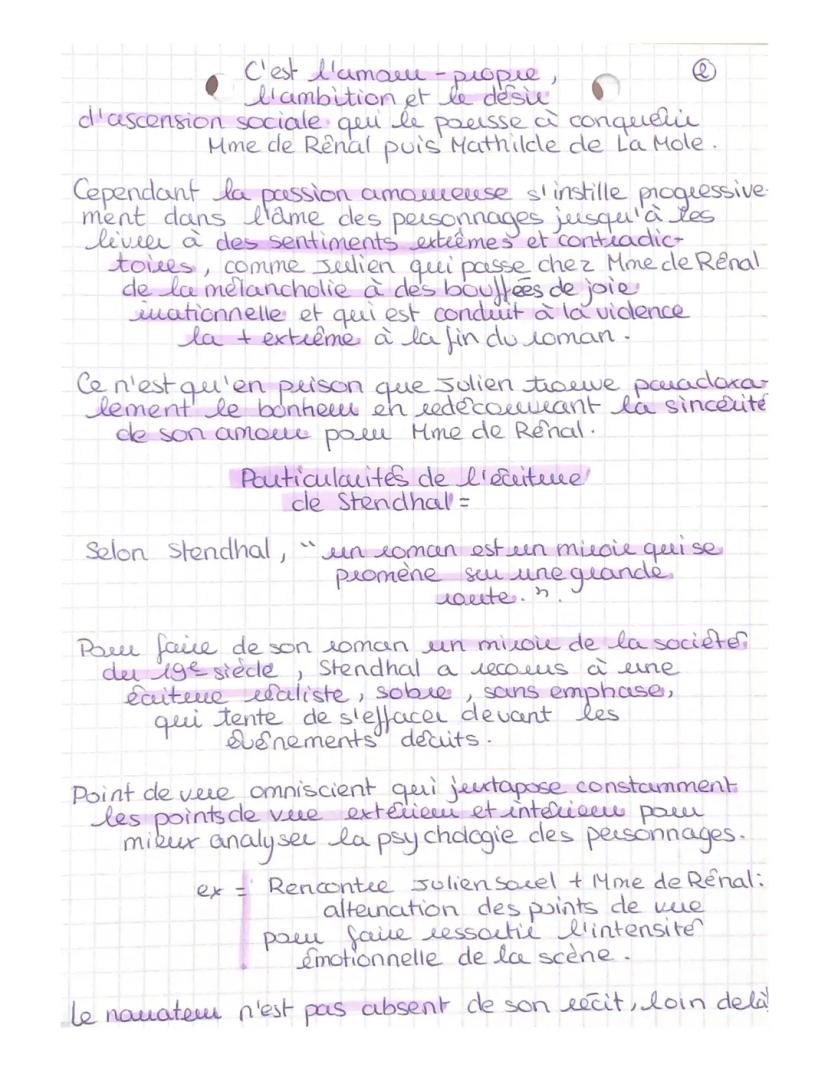 C'est l'amour-propre, ②
l'ambition et le désir
d'ascension sociale qui le pousse à conquérir
Mme de Rênal puis Mathilde de La Mole.
Cependant la passion amoureuse s'instille progressive-
ment dans l'âme des personnages jusqu'à les
livrer à des sentiments extrêmes et contradic-
toires, comme Julien qui passe chez Mme de Rênal
de la mélancholie à des bouffées de joie
irrationnelle et qui est conduit à la violence
la + extrême à la fin du roman.
Ce n'est qu'en prison que Julien trouve paradoxa-
lement le bonheur en redécouvrant la sincérité
de son amour pour Mme de Rênal.
Particularités de l'écriture
de Stendhal =
Selon Stendhal, "un roman est un miroir qui se
promène sur une grande
route.".
Pour faire de son roman un miroir de la société
du 19e siècle, Stendhal a recours à une
écriture réaliste, sobre, sans emphase,
qui tente de s'effacer devant les
événements décrits.
Point de vue omniscient qui juxtapose constamment
les points de vue extérieur et intérieur pour
mieux analyser la psychologie des personnages.
ex = Rencontre Julien Sorel + Mme de Rênal:
alternation des points de vue
pour faire ressortir l'intensité
émotionnelle de la scène.
Le narrateur n'est pas absent de son récit, loin de là